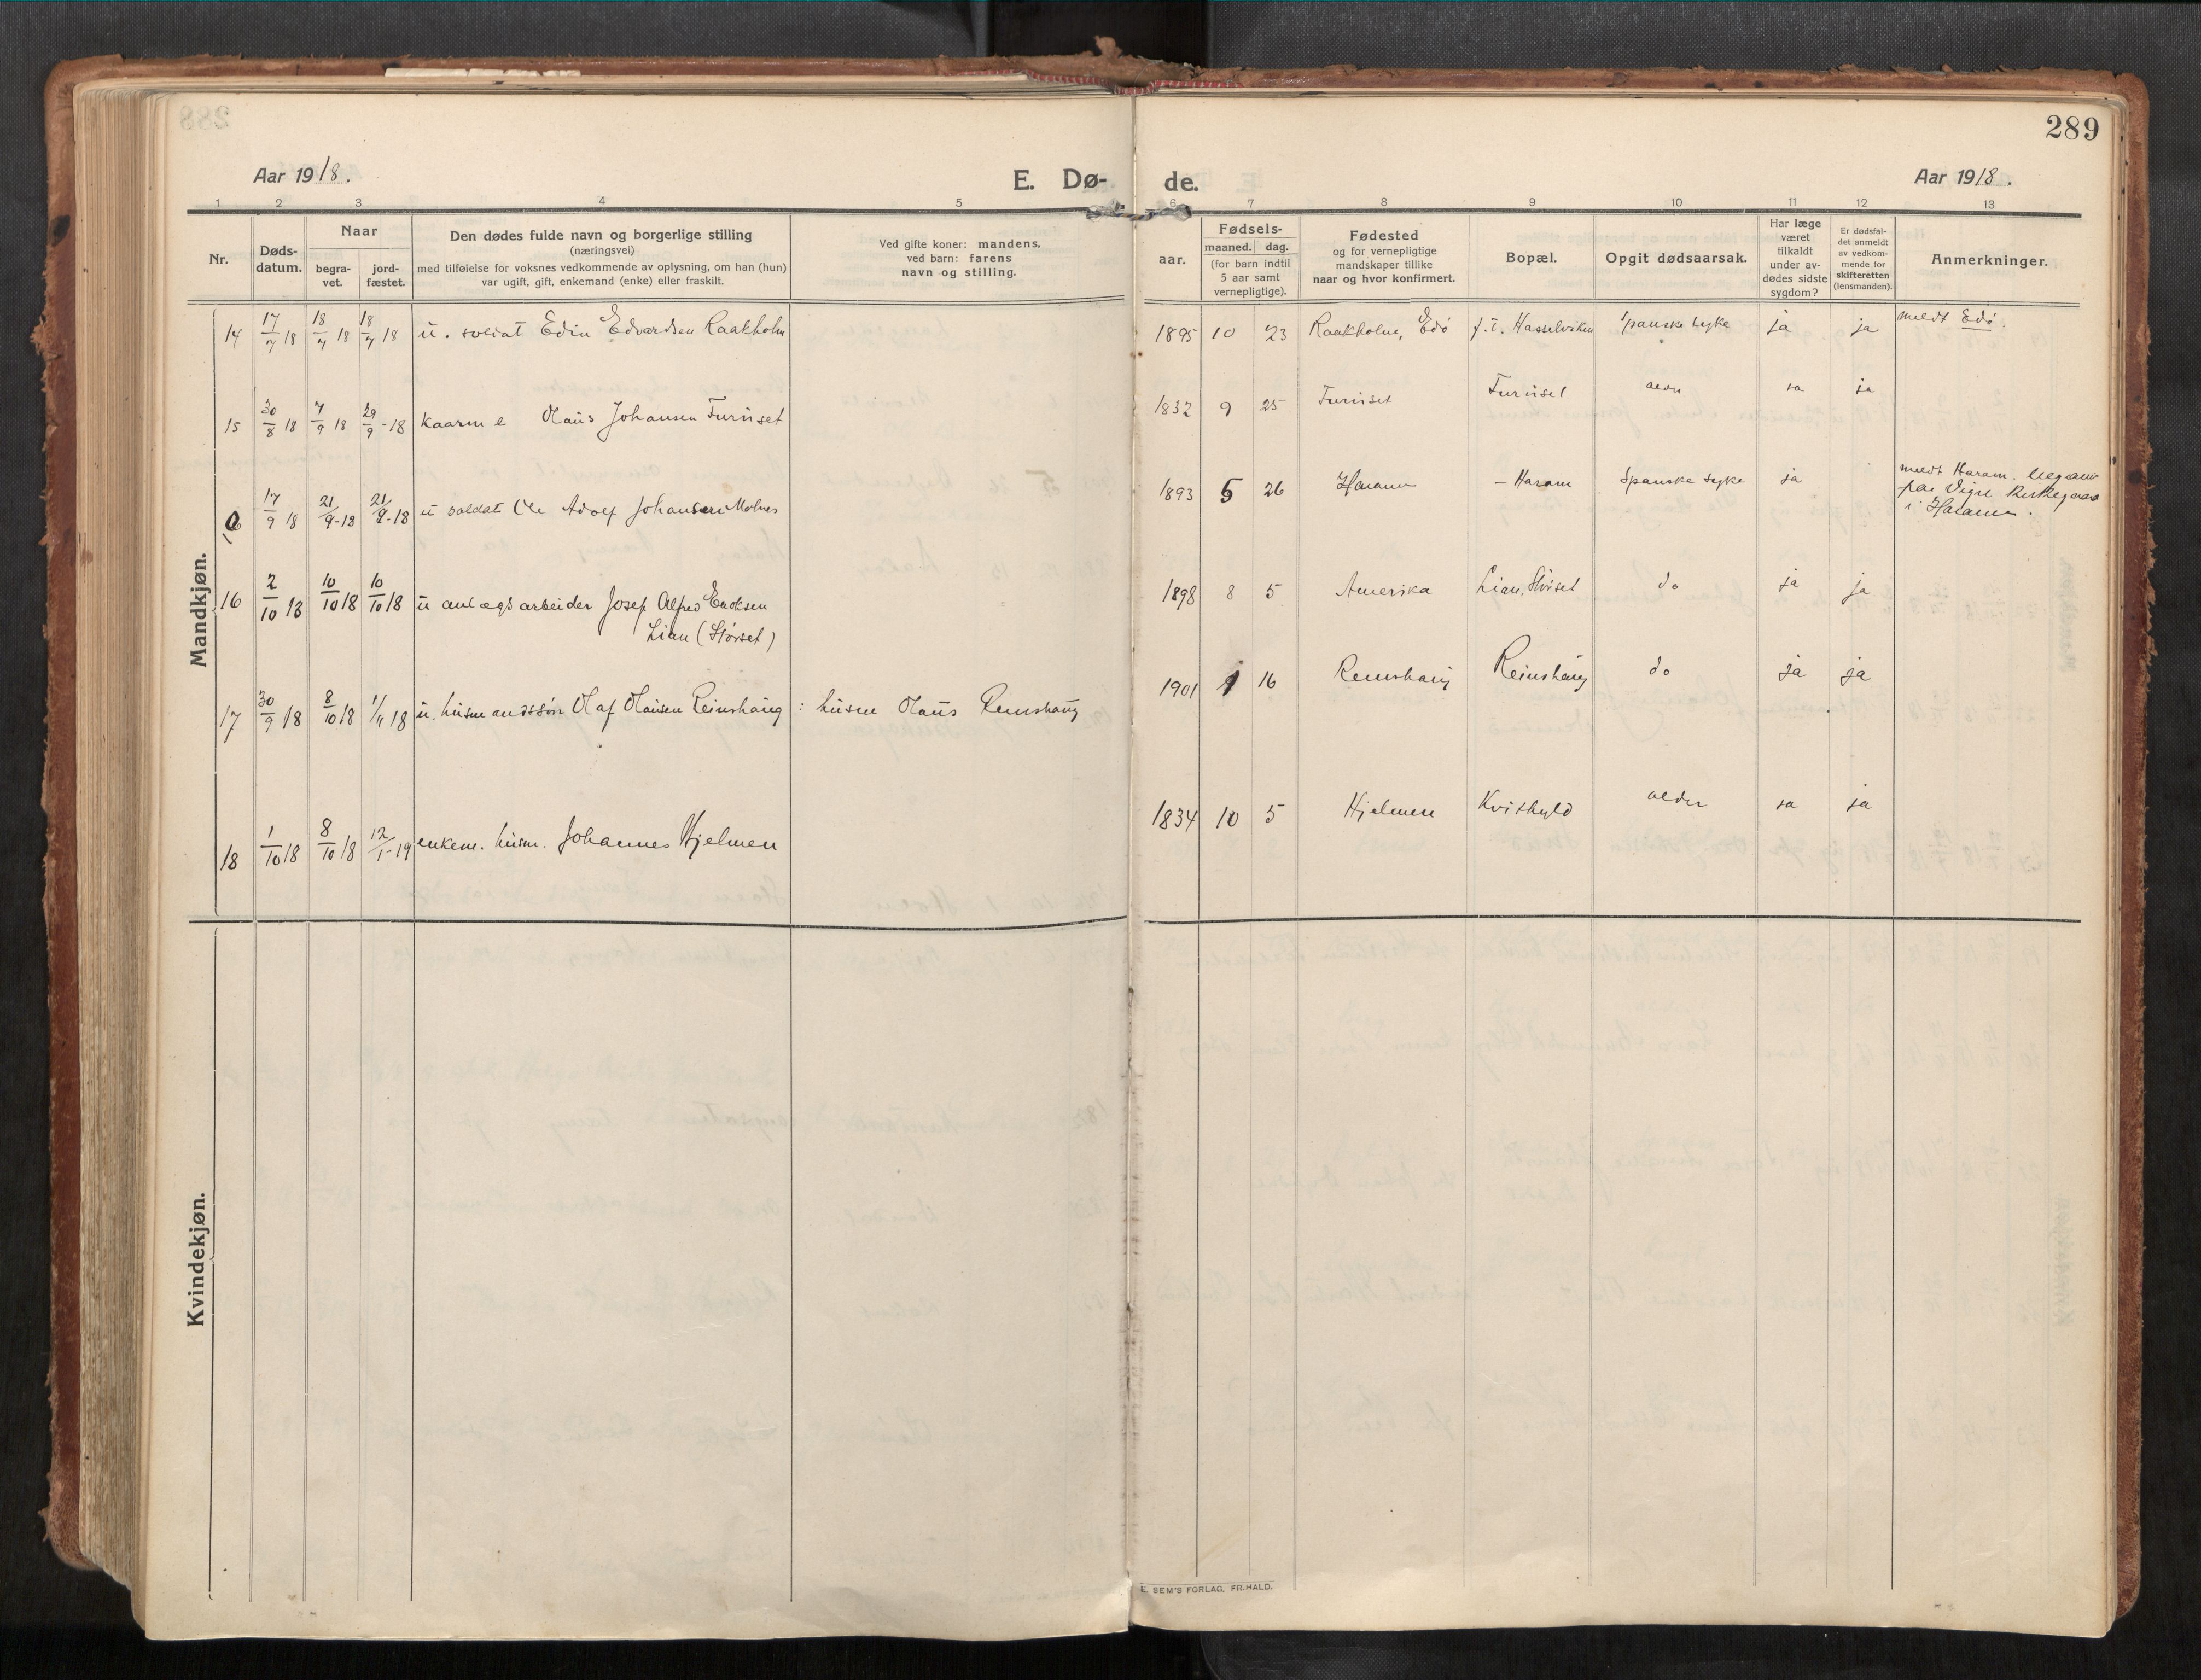 289
Aar 1918.
E. Dø-
de.
Aar 1918.
1 2 3 4 5 6 7 8 9 10 11 12 13
Nr.
Døds-
datum.
Naar
begra-
vet.
jord-
fæstet.
Den dødes fulde navn og borgerlige stilling
(næringsvei)
med tilføielse for voksnes vedkommende av oplysning, om han (hun)
var ugift, gift, enkemand (enke) eller fraskilt.
Ved gifte koner: mandens,
ved barn: farens
navn og stilling.
Fødsels-
aar.
maaned. dag.
(for barn indtil
5 aar samt
vernepligtige).
Fødested
og for vernepligtige
mandskaper tillike
naar og hvor konfirmert.
Bopæl.
Opgit dødsaarsak.
Har læge
været
tilkaldt
under av-
dødes sidste
sygdom?
Er dødsfal-
det anmeldt
av vedkom-
mende for
skifteretten
(lensmanden).
Anmerkninger.
Mandkjøn.
14 17/7 18 18/7 18 18/7 18 u. soldat Edin Edvardsen Raakholm 1895 10 23 Raakholm, Edö f.t. Hasselviken Spanske syke ja ja meldt Edö.
15 30/8 18 7/9 18 29/9-18 kaarm e Olaus Johansen Furuset 1832 9 25 Furuset Furuset alder ja
17/9 18 21/9-18 21/9-18 u soldat Ole Adolf Johansen Molnes 1893 5 26 Haram - Haram Spanske syke ja meldt Haram.
paa Vigre Kirkegaard
i Haram.
16 2/10 18 10/10 18 10/10 18 u anlægsarbeider Josef Alfred Ericksen
Lian (Störset) 1898 8 5 Amerika Lian, Störset do ja ja
17 30/9 18 8/10 18 1/11 18 u. husmandssön Olaf Olausen Reinshaug : husm Olaus Reinshaug 1901 1 16 Reinshaug Reinshaug do ja ja
18 1/10 18 8/10 18 12/1-19 enkem. husm. Johannes Hjelmen 1834 10 5 Hjelmen Kvithyld alder ja ja
Kvindekjøn.
E. SEM'S FORLAG, FR.HALD.